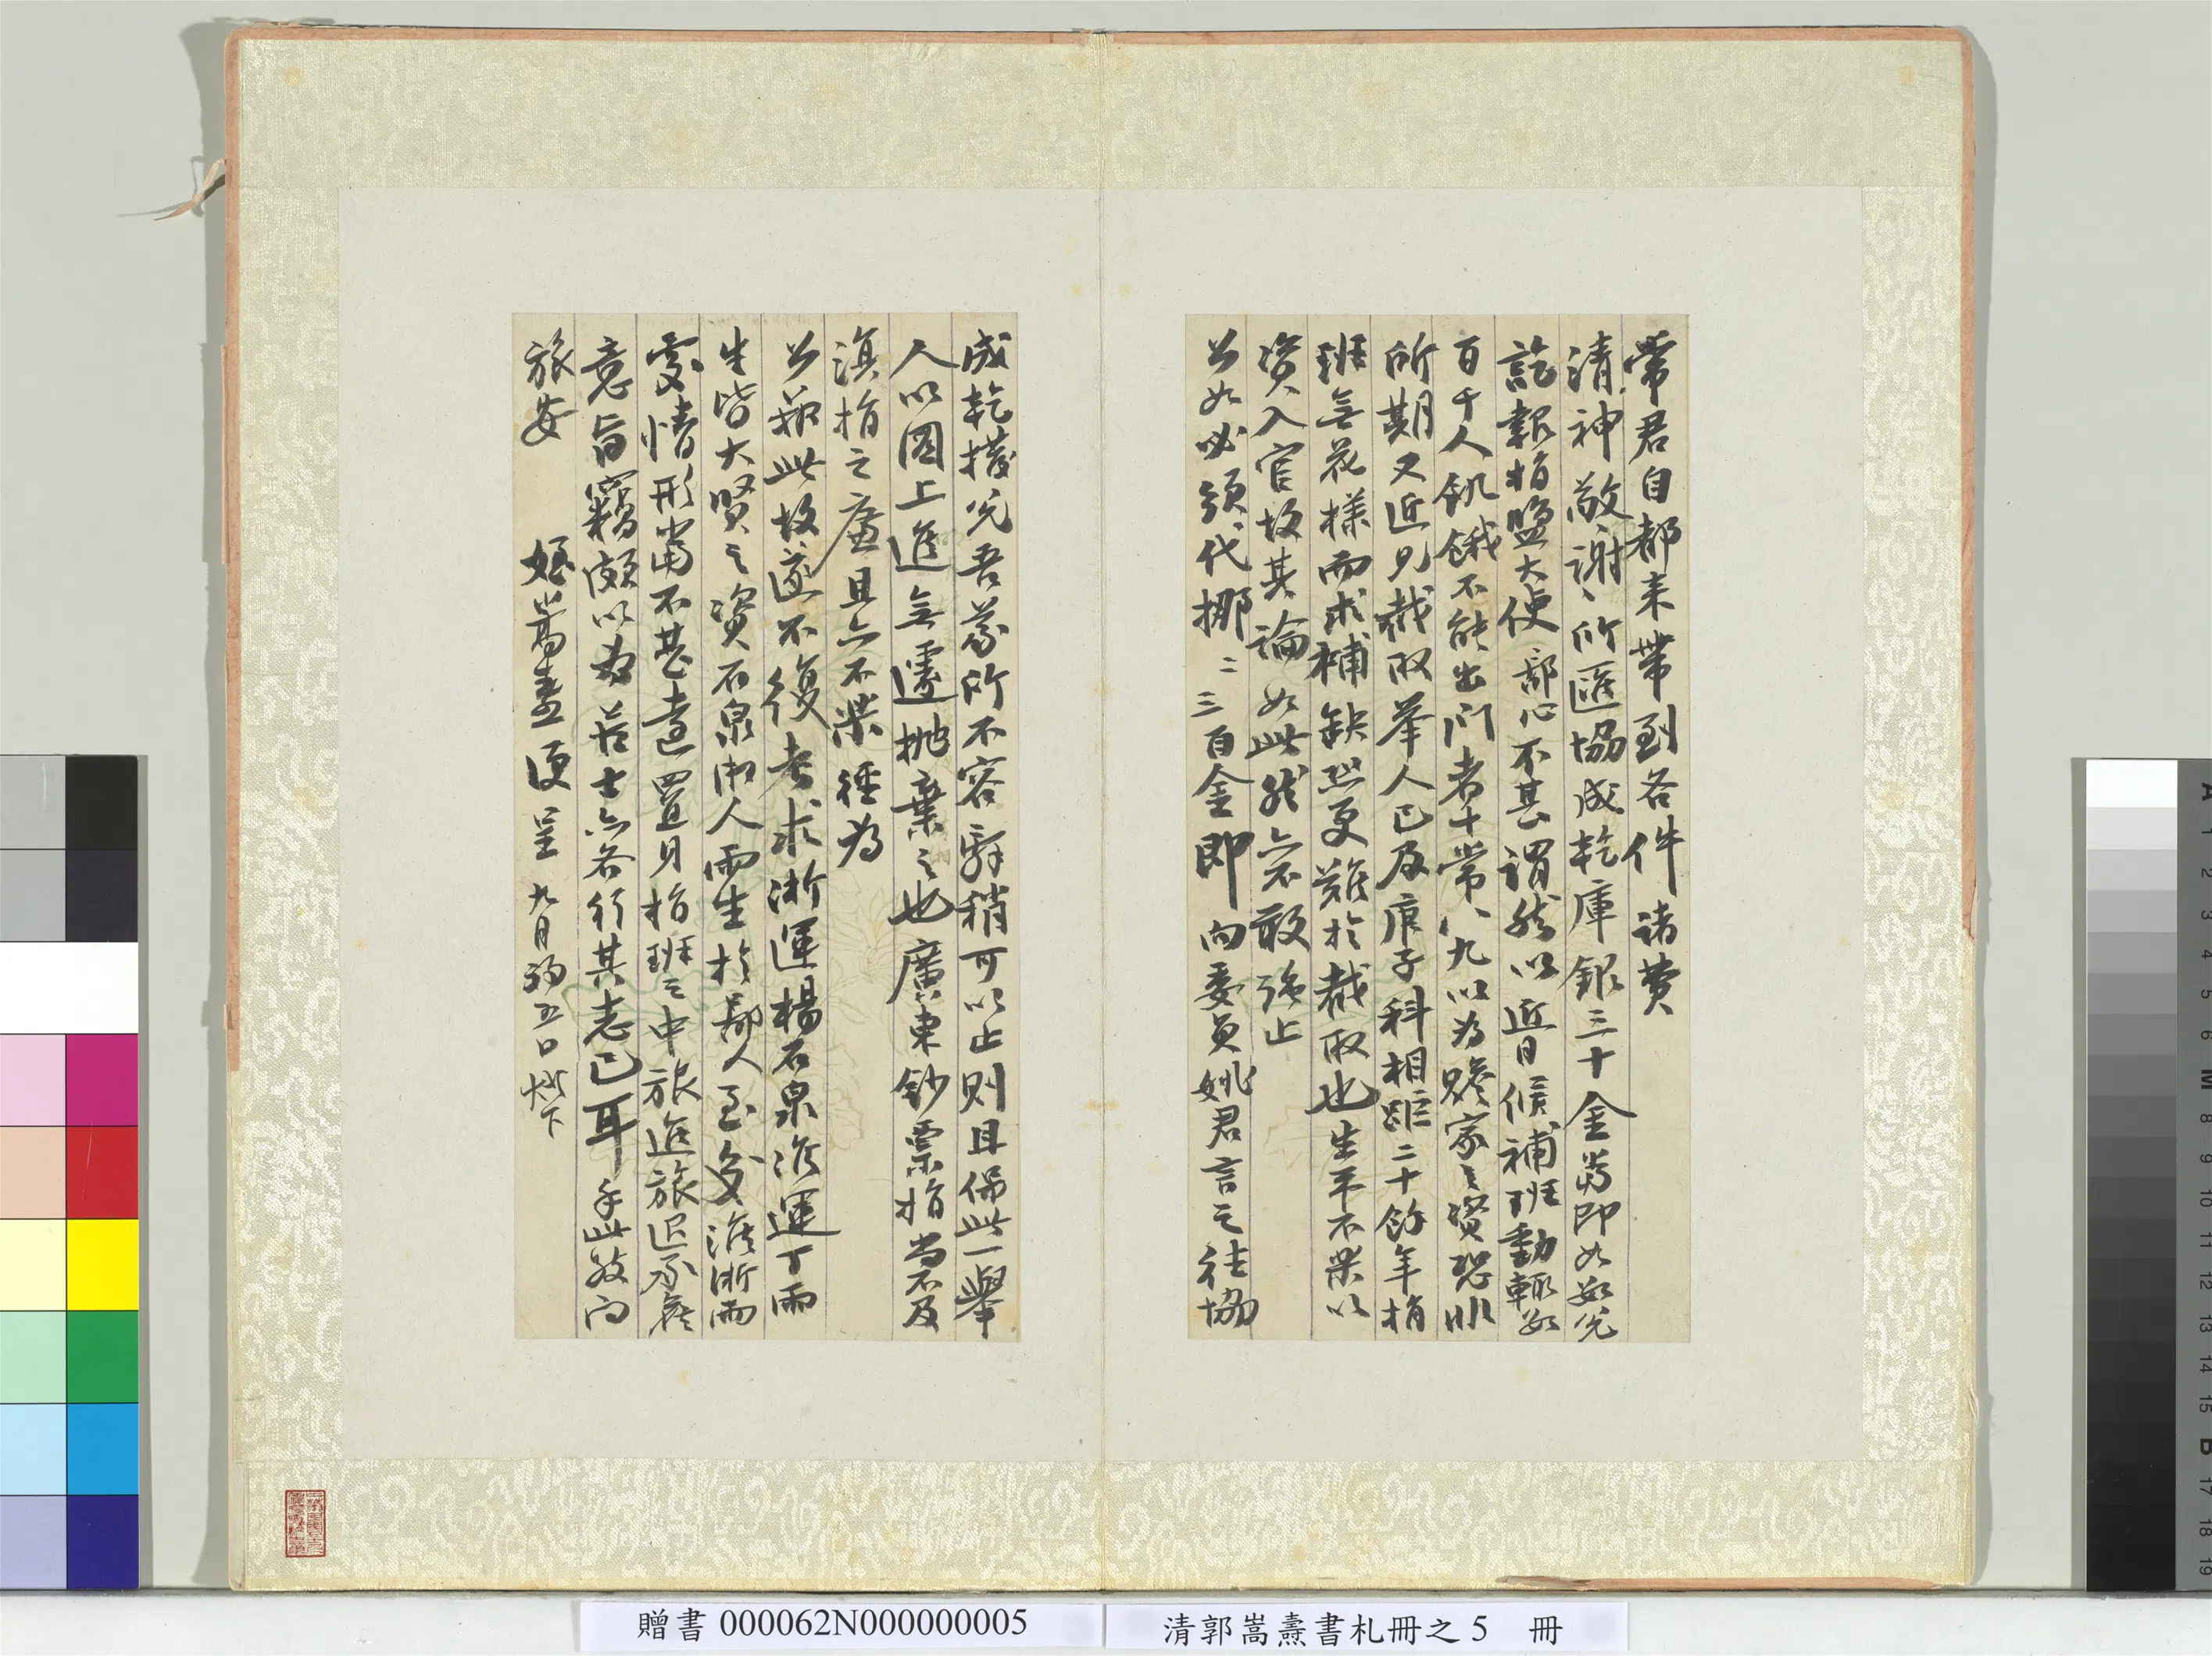 常君自都來帶到各件諸費
清神敬謝敬謝所匯協成乾庫銀三十金當即如數兌
訖報捐鹽大使鄙心不甚謂然以近日候補班動輒數
百千人飢餓不能出門者十常八九以為贍家之資恐非
所期又近見截取舉人已及庚子科相距二十餘年捐
班無花樣而求補缺恐更難於截取也生平不樂以
資入官故其論如此然亦不敢強止
公如必須代挪二三百金即向委員姚君言之往協
成乾撥兌吾義所不容辭稍可以止則且保此一舉
人以圖上進無遽拋棄之也廣東鈔票捐尚不及
滇捐之廉且亦不樂經為
公籌此故遂不復考求浙運楊石泉淮運丁雨
生皆大賢之資石泉湘人雨生於鄙人至交淮浙兩
處情形當不甚遠置身捐班之中旅進旅退承襲
意旨竊頗以為苦士亦各行其志已耳手此敬問
旅安
姪嵩燾便呈 九月初五日燈下
贈書 000062N000000005
清郭嵩燾書札冊之 5 冊